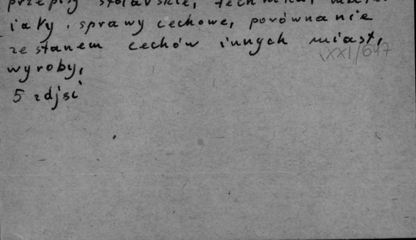 przepisy stolarskie, technika, mater
iały, sprawy cechowe, porównanie
ze stanem cechów innych miast,
XXI/677
wyroby,
5 zdjęć